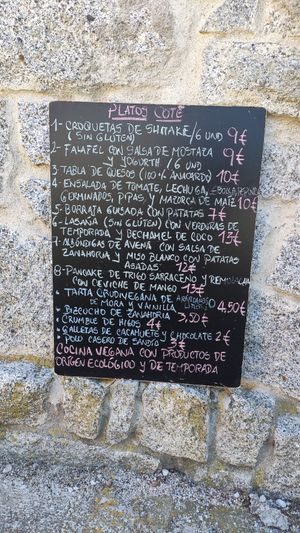 PLATOS COTE
1- CROQUETAS DE SHIITAKE /6 UND 9€
(SIN GLUTEN)
2- FALAFEL CON SALSA DE MOSTAZA
Y YOGURTH /6 UND 9€
3 TABLA DE QUESOS (100% ANACARDO) 10€
4- ENSALADA DE TOMATE, LECHUGA,
GERMINADOS, PIPAS Y MAZORCA DE MAIZ 10€
5- BORRAJA GUISADA CON PATATAS 7€
6- LASAÑA (SIN GLUTEN) CON VERDURAS DE
TEMPORADA Y BECHAMEL DE COCO 15€
7- ALBÓNDIGAS DE AVENA CON SALSA DE
ZANAHORIA Y MISO BLANCO CON PATATAS
ASADAS 12€
8- PANCAKE DE TRIGO SARRACENO Y
CON CEVICHE DE MANGO 13€
• TARTA CRUDIVEGANA DE
DE MORA Y VAINILLA 4,50€
• BIZCOCHO DE ZANAHORIA 3,50€
• CRUMBLE DE HIGOS 4€
• GALLETAS DE CACAHUETE Y CHOCOLATE 2€
• POLO CASERO DE SANDÍA 3€
COCINA VEGANA CON PRODUCTOS DE
ORIGEN ECOLÓGICO Y DE TEMPORADA